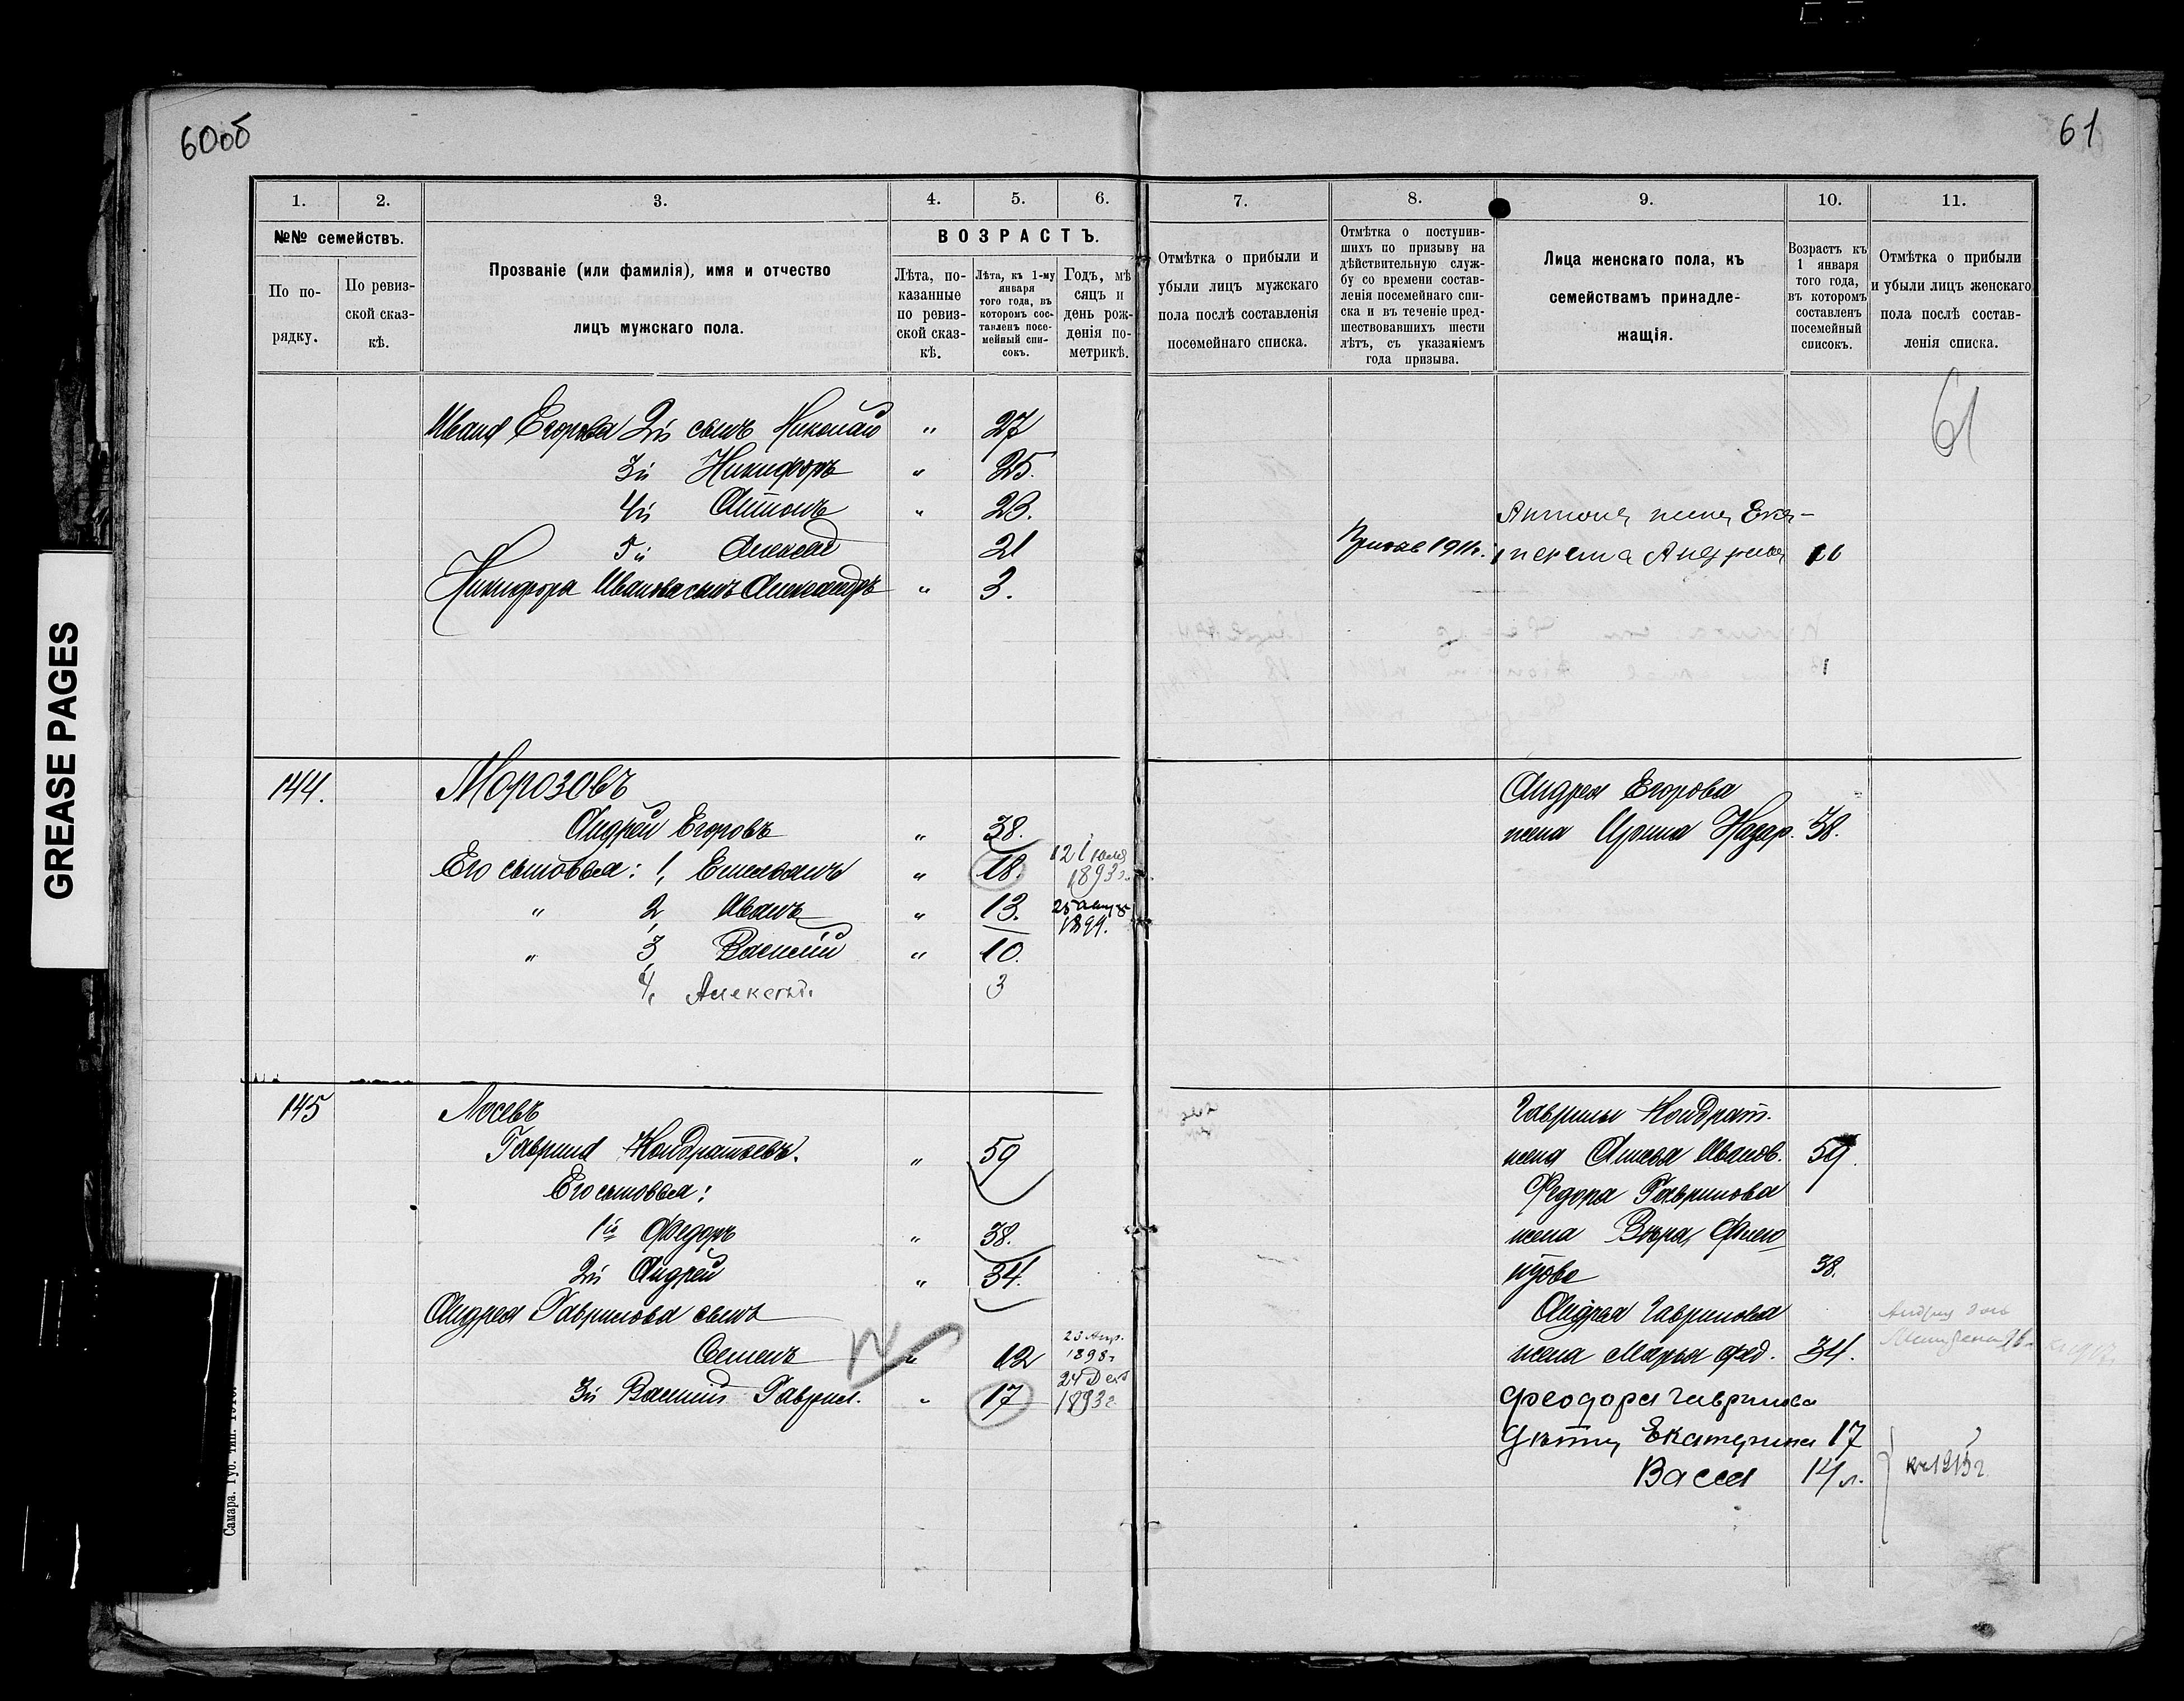 60об
61
1.
2.
3.
4.
5.
6.
7.
8.
9.
10.
11.
№№ семействъ.
По по-
рядку.
По ревиз-
ской сказ-
кѣ.
Прозваніе (или фамилія), имя и отчество
лицъ мужскаго пола.
ВОЗРАСТЪ.
Лѣта, по-
казанные
по ревиз-
ской сказ-
кѣ.
Лѣта, къ 1-му
января
того года, въ
которомъ сос-
тавленъ посе-
мейный спи-
сокъ.
Годъ, мѣ
сяцъ и
день рож-
денія по-
метрикѣ.
Отмѣтка о прибыли и
убыли лицъ мужскаго
пола послѣ составленія
посемейнаго списка.
Отмѣтка о поступив-
шихъ по призыву на
дѣйствительную служ-
бу со времени состав-
ленія посемейнаго спи-
ска и въ теченіе пред-
шествовавшихъ шести
лѣтъ, съ указаніемъ
года призыва.
Лица женскаго пола, къ
семействамъ принадле-
жащія.
Возрастъ къ
1 января
того года,
въ которомъ
составленъ
посемейный
списокъ.
Отмѣтка о прибыли
и убыли лицъ женскаго
пола послѣ состав-
ленія списка.
61
Ивана Егорова 2й сынъ Николай " 27
3й Никифоръ " 25.
4й Антонъ " 23.
Антона жена Ека-
5й Алексей 21
1911г.
Никифора Иванова сынъ Александръ " 3.
144. Морозовъ
Андрея Егорова
Андрей Егоровъ " 38.
жена Ирина Назар. 38.
Его сыновья: 1, Емельянъ " 18. 12 Іюля
1893г.
" 2, Иванъ " 13. 25
" 3, Василій " 10.
4, Алексѣй 3
145 Лосевъ
Гаврилы Кондрат.
Гаврила Кондратьевъ. " 59
жена Иванов. 59.
Его сыновья:
Федора Гаврилова
1й Федоръ " 38.
жена Вѣра
2й Андрей " 34.
38.
Андрея Гаврилова сынъ
Андрея Гаврилова
Семенъ " 12 23 Апр.
1898г
жена Марья Фед. 34.
3й Василій Гаврил. " 17 24 Дек
1893г
Феодора Гаврилова
дѣти, Екатерина 17
Васса 14 л.